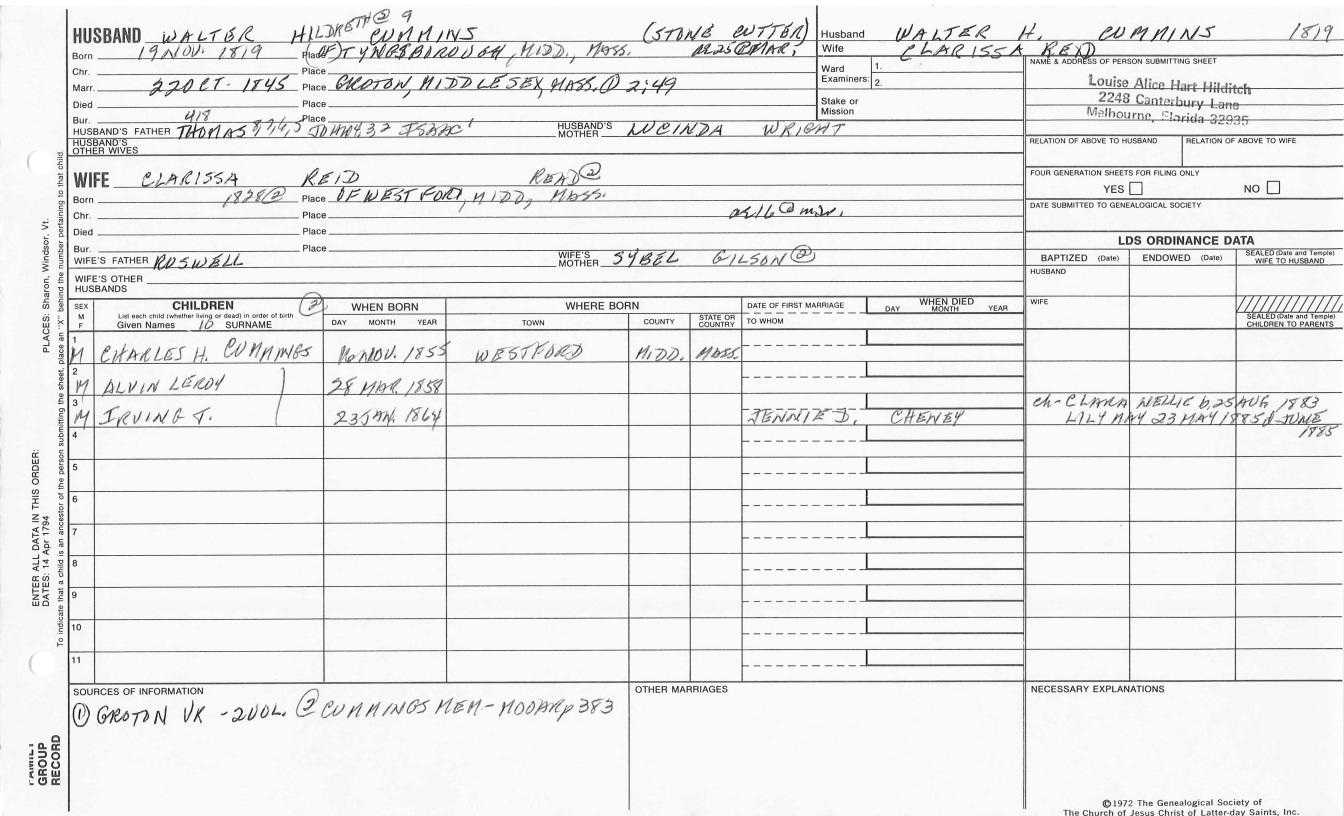 HUSBAND WALTER HILDRETH② 9 CUMMINS (STONE CUTTER)
Born 19 NOV. 1819 Place (OF) TYNGSBOROUGH, MIDD, MASS. æ 25 @ MAR,
Chr. Place
Marr. 22 OCT - 1845 Place GROTON, MIDDLESEX, MASS. ① 2:49
Died Place
Bur. Place
418
HUSBAND'S FATHER THOMAS 8,7,6,5 JOHN 4 3 2 ISAAC 1 HUSBAND'S MOTHER LUCINDA WRIGHT
HUSBAND'S OTHER WIVES
WIFE CLARISSA REID READ②
Born 1828② Place OF WESTFORD, MIDD, MASS.
Chr. Place æ 16 @ mar.
Died Place
Bur. Place
WIFE'S FATHER ROSWELL WIFE'S MOTHER SYBEL GILSON②
WIFE'S OTHER HUSBANDS
Husband WALTER H. CUMMINS 1819
Wife CLARISSA REID
Ward 1.
Examiners: 2.
Stake or Mission
NAME & ADDRESS OF PERSON SUBMITTING SHEET
Louise Alice Hart Hilditch
2248 Canterbury Lane
Melbourne, Florida 32935
RELATION OF ABOVE TO HUSBAND RELATION OF ABOVE TO WIFE
FOUR GENERATION SHEETS FOR FILING ONLY
YES NO
DATE SUBMITTED TO GENEALOGICAL SOCIETY
LDS ORDINANCE DATA
BAPTIZED (Date) ENDOWED (Date) SEALED (Date and Temple) WIFE TO HUSBAND
HUSBAND
WIFE
SEALED (Date and Temple) CHILDREN TO PARENTS
SEX M F CHILDREN ② WHEN BORN WHERE BORN DATE OF FIRST MARRIAGE WHEN DIED
List each child (whether living or dead) in order of birth
Given Names 10 SURNAME DAY MONTH YEAR TOWN COUNTY STATE OR COUNTRY TO WHOM DAY MONTH YEAR
1 M CHARLES H. CUMMINGS 16 NOV. 1855 WESTFORD MIDD. MASS.
2 M ALVIN LEROY 28 MAR. 1858
3 M IRVING T. 23 JAN. 1864 JENNIE D. CHENEY
ch- CLARA NELLIE b, 25 AUG 1883
LILY MAY 23 MAY 1885 d JUNE
1885
4
5
6
7
8
9
10
11
SOURCES OF INFORMATION
① GROTON VR - 2 VOL. ② CUMMINGS MEM - MOOAR p 383
OTHER MARRIAGES
NECESSARY EXPLANATIONS
©1972 The Genealogical Society of
The Church of Jesus Christ of Latter-day Saints, Inc.
ENTER ALL DATA IN THIS ORDER:
DATES: 14 Apr 1794
PLACES: Sharon, Windsor, Vt.
To indicate that a child is an ancestor of the person submitting the sheet, place an "X" behind the number pertaining to that child.
FAMILY
GROUP
RECORD